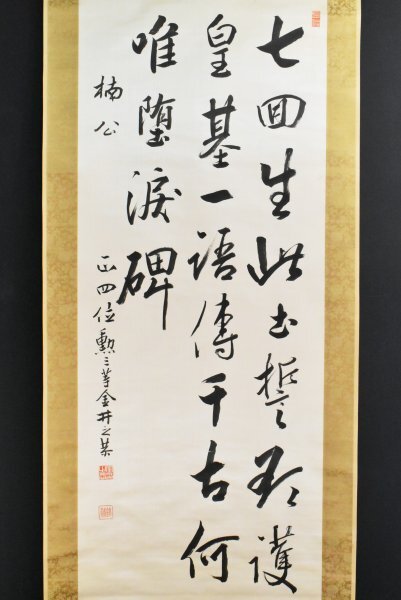 七回生此土誓死護
皇基一語傳千古何
唯墮淚碑
楠公
正四位勲三等金井之恭